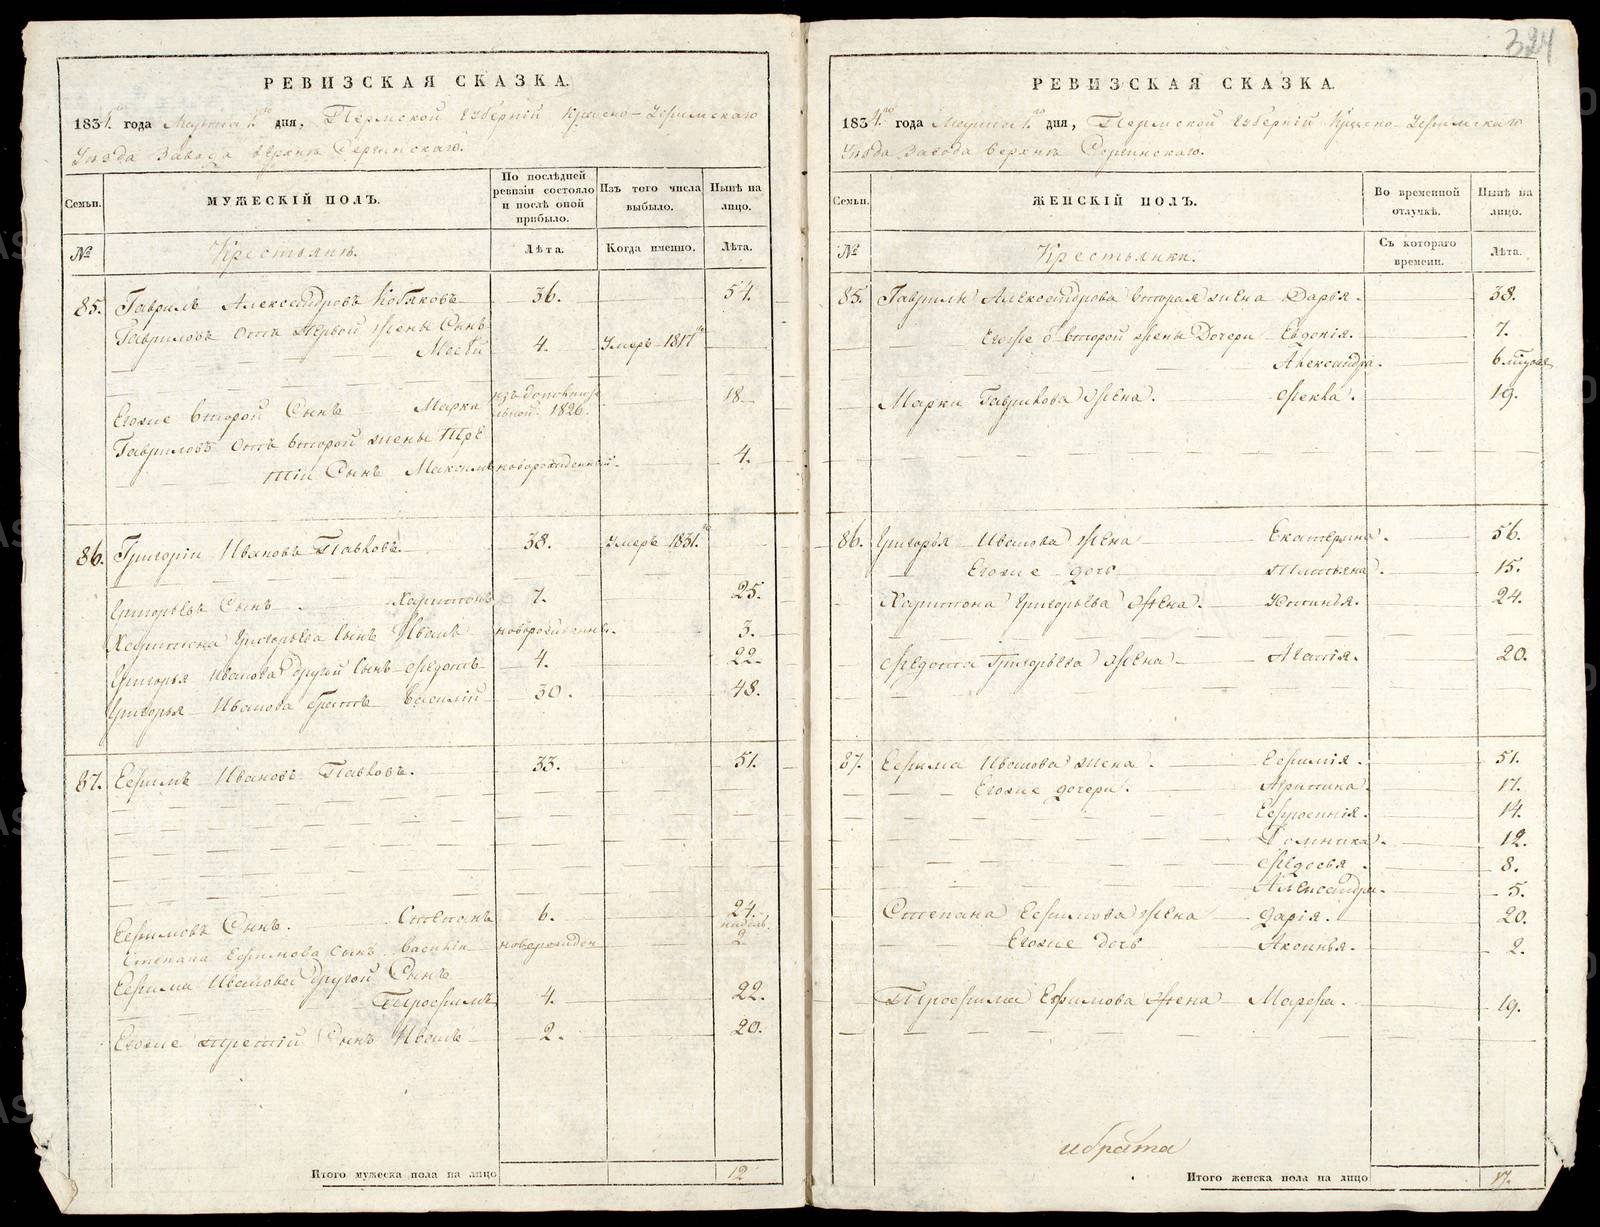 324
РЕВИЗСКАЯ СКАЗКА.
1834.го года Марта 1.го дня, Пермской Губерніи Красно-Уфимскаго
Уѣзда Завода Верхнѣ Сергинскаго.
Семьи.
МУЖЕСКІЙ ПОЛЪ.
По послѣдней ревизіи состояло и послѣ оной прибыло.
Изъ того числа выбыло.
Нынѣ на лицо.
№
Крестьянѣ.
Лѣта.
Когда именно.
Лѣта.
85. Гаврилъ Александровъ Кобяковъ 36. 54.
Гавриловъ отъ первой жены Сынъ
4. Умеръ 1817го
Егоже второй Сынъ Марки изъ дополнительной 1826. 18.
Гавриловъ отъ второй жены Тре
тій Сынъ Максимъ новорожденный. 4.
86. Григорій Ивановъ Павловъ. 38. Умеръ 1831.го
Григорьевъ Сынъ Харитонъ 7. 25.
Харитона Григорьева Сынъ Иванъ новорожденны. 3.
Григорья Иванова другой Сынъ Федотъ 4. 22.
Григорья Иванова братъ Василій 30. 48.
87. Ефимъ Ивановъ Павловъ. 33. 51.
Ефимовъ Сынъ. Степанъ 6. 24.
Степана Ефимова Сынъ Василій новорожден недѣль. 2.
Ефима Иванова другой Сынъ
Трофимъ 4. 22.
Егоже третій Сынъ Иванъ 2. 20.
Итого мужеска пола на лицо 12
РЕВИЗСКАЯ СКАЗКА.
1834.го года Марта 1.го дня, Пермской Губерніи Красно-Уфимскаго
Уѣзда Завода Верхнѣ Сергинскаго.
Семьи.
ЖЕНСКІЙ ПОЛЪ.
Во временной отлучкѣ.
Нынѣ на лицо.
№
Крестьянки.
Съ котораго времени.
Лѣта.
85. Гаврилы Александрова вторая жена Дарья. 38.
Егоже о второй жены Дочери Евдокія. 7.
Александра. 6
Марки Гаврилова Жена. Фекла. 19.
86. Григорья Иванова Жена Екатерина. 56.
Егоже дочь Татьяна. 15.
Харитона Григорьева Жена. Устинья. 24.
Федота Григорьева Жена Агапія. 20.
87. Ефима Иванова жена. Ефимія. 51.
Егоже дочери. Агрипина. 17.
Ефросинія. 14.
Домника. 12.
Федосья. 8.
Александра. 5.
Степана Ефимова Жена Дарія. 20.
Егоже дочь Аксинья. 2.
Трофима Ефимова Жена Марфа. 19.
играта
Итого женска пола на лицо 17.